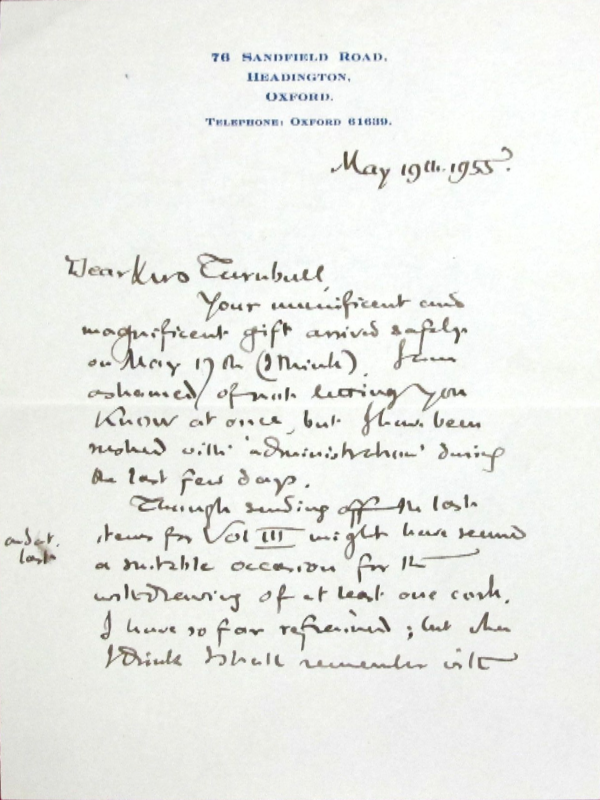 76 SANDFIELD ROAD,
HEADINGTON,
OXFORD.
TELEPHONE: OXFORD 61639.
May 19th. 1955.
Dear Mrs Turnbull,
Your munificent and
magnificent gift arrived safely
on May 17th (I think). I am
ashamed of not letting you
know at once, but I have been
rushed with 'administration' during
the last few days.
Though sending off the last
and at last
items for Vol III might have seemed
a suitable occasion for the
withdrawing of at least one cork,
I have so far refrained; but when
I drink I shall remember with